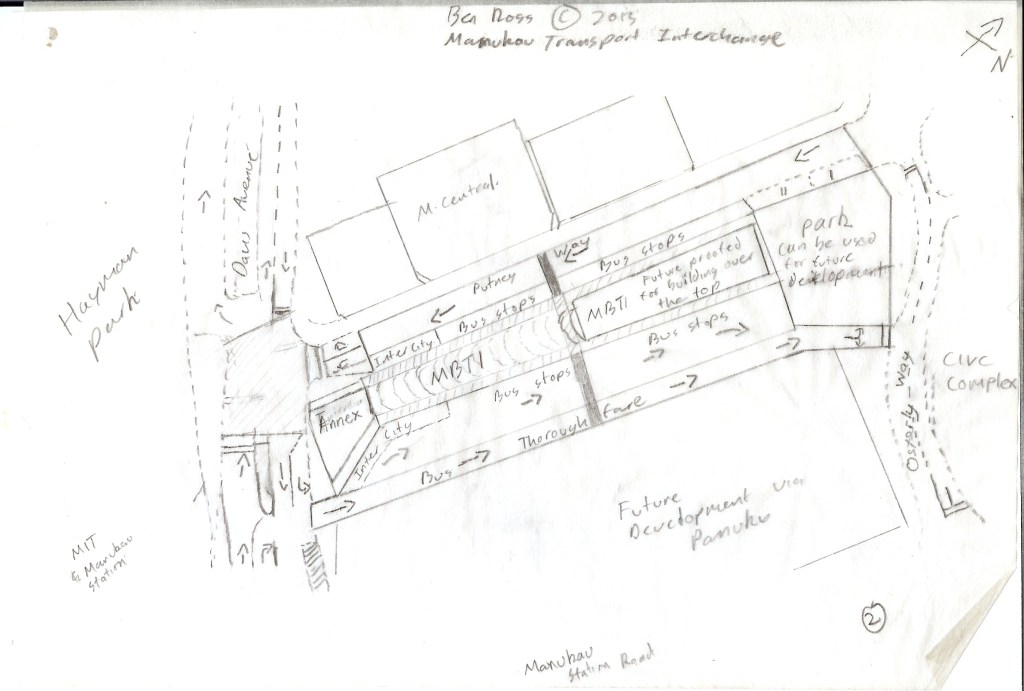 Ben Ross © 2015
Manukau Transport Interchange
N
Hayman
Park
Davis Avenue
M. Central.
Putney
Way
Bus stops
Bus stops
InterCity
MBTI
Bus stops
MBTI
Future proofed
for building over
the top
Bus stops
Park
can be used
for future
development
Annex
Inter
City
Bus
Thorough
fare
Osterly Way
Civc
Complex
Future
Development via
Panuku
MIT
& Manukau
Station
Manukau
Station Road
2